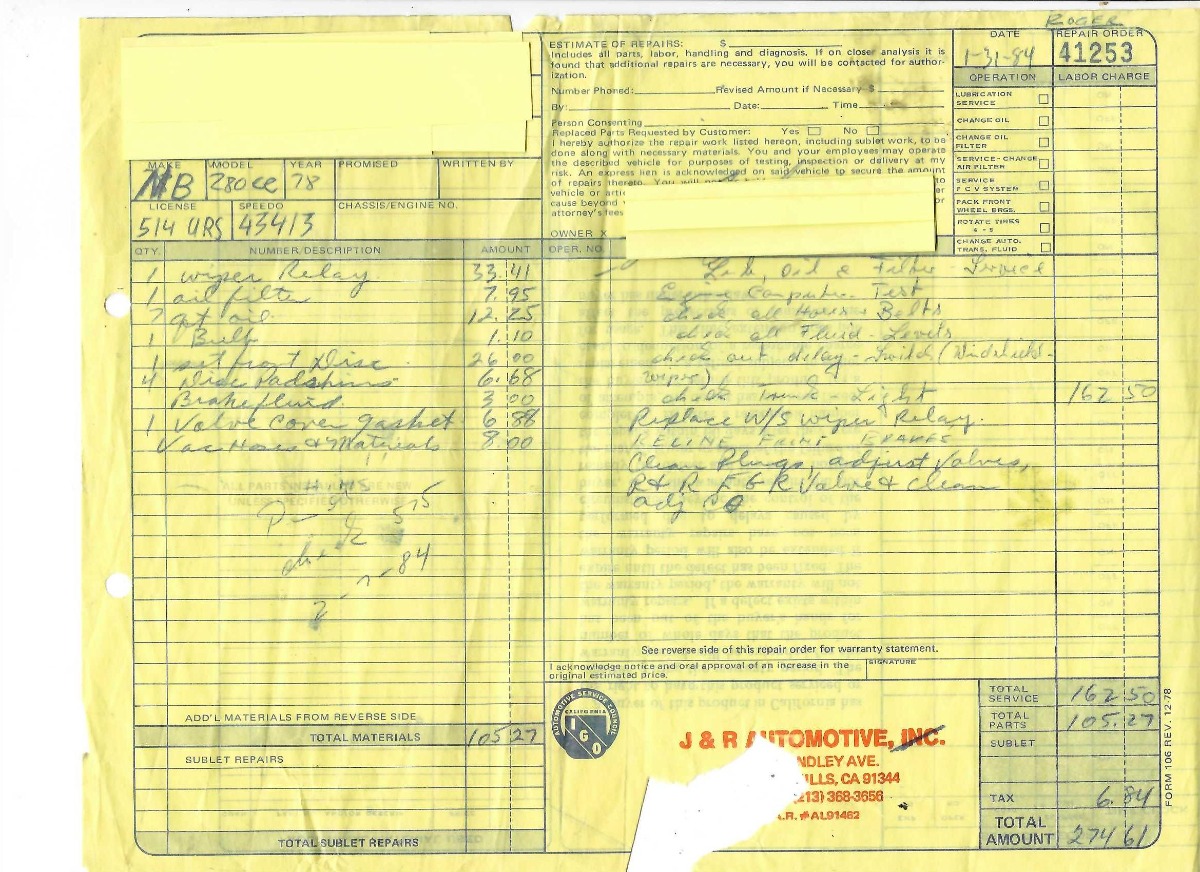 ROGER
ESTIMATE OF REPAIRS: $
Includes all parts, labor, handling and diagnosis. If on closer analysis it is
found that additional repairs are necessary, you will be contacted for author-
ization.
Number Phoned: Revised Amount if Necessary $
By: Date: Time
Person Consenting
Replaced Parts Requested by Customer: Yes No
I hereby authorize the repair work listed hereon, including sublet work, to be
done along with necessary materials. You and your employees may operate
the described vehicle for purposes of testing, inspection or delivery at my
risk. An express lien is acknowledged on said vehicle to secure the amount
of repairs thereto. You will
vehicle or
cause beyond
attorney's fees
OWNER X
DATE
1-31-84
REPAIR ORDER
41253
OPERATION
LABOR CHARGE
LUBRICATION SERVICE
CHANGE OIL
CHANGE OIL FILTER
SERVICE-CHANGE AIR FILTER
SERVICE P C V SYSTEM
PACK FRONT WHEEL BRGS.
ROTATE TIRES 4 - 5
CHANGE AUTO. TRANS. FLUID
MAKE MODEL YEAR PROMISED WRITTEN BY
MB 280CE 78
LICENSE SPEEDO CHASSIS/ENGINE NO.
514 URS 43413
QTY. NUMBER/DESCRIPTION AMOUNT OPER. NO.
1 wiper Relay 33.41
1 oil filter 7.95
7 qt oil 12.25
1 Bulb 1.10
1 set front Disc 26 00
4 Disc Pad shims 6.68
Brake fluid 3 00
1 Valve cover gasket 6 88
Vac Hoses & Materials 8.00
Lub, Oil & Filter - Service
Engine Computer Test
check all Hoses + Belts
check all Fluid - Levels
check out delay - Switch (Windshield-
wiper)
check Trunk - Light 162 50
Replace W/S wiper Relay.
RELINE FRONT BRAKES
Clean Plugs, adjust Valves,
R & R EGR Valve & Clean
adj CO
ALL PARTS
NEW
UNLESS SPECIFIED OTHERWISE
See reverse side of this repair order for warranty statement.
I acknowledge notice and oral approval of an increase in the
original estimated price.
SIGNATURE
ADD'L MATERIALS FROM REVERSE SIDE
TOTAL MATERIALS 105 27
SUBLET REPAIRS
TOTAL SUBLET REPAIRS
AUTOMOTIVE SERVICE COUNCIL
CALIFORNIA
IGO
J & R AUTOMOTIVE, INC.
NDLEY AVE.
ILLS, CA 91344
(213) 368-3656
A.R. #AL91462
TOTAL SERVICE 162 50
TOTAL PARTS 105.27
SUBLET
TAX 6.84
TOTAL AMOUNT 274 61
FORM 106 REV. 12-78